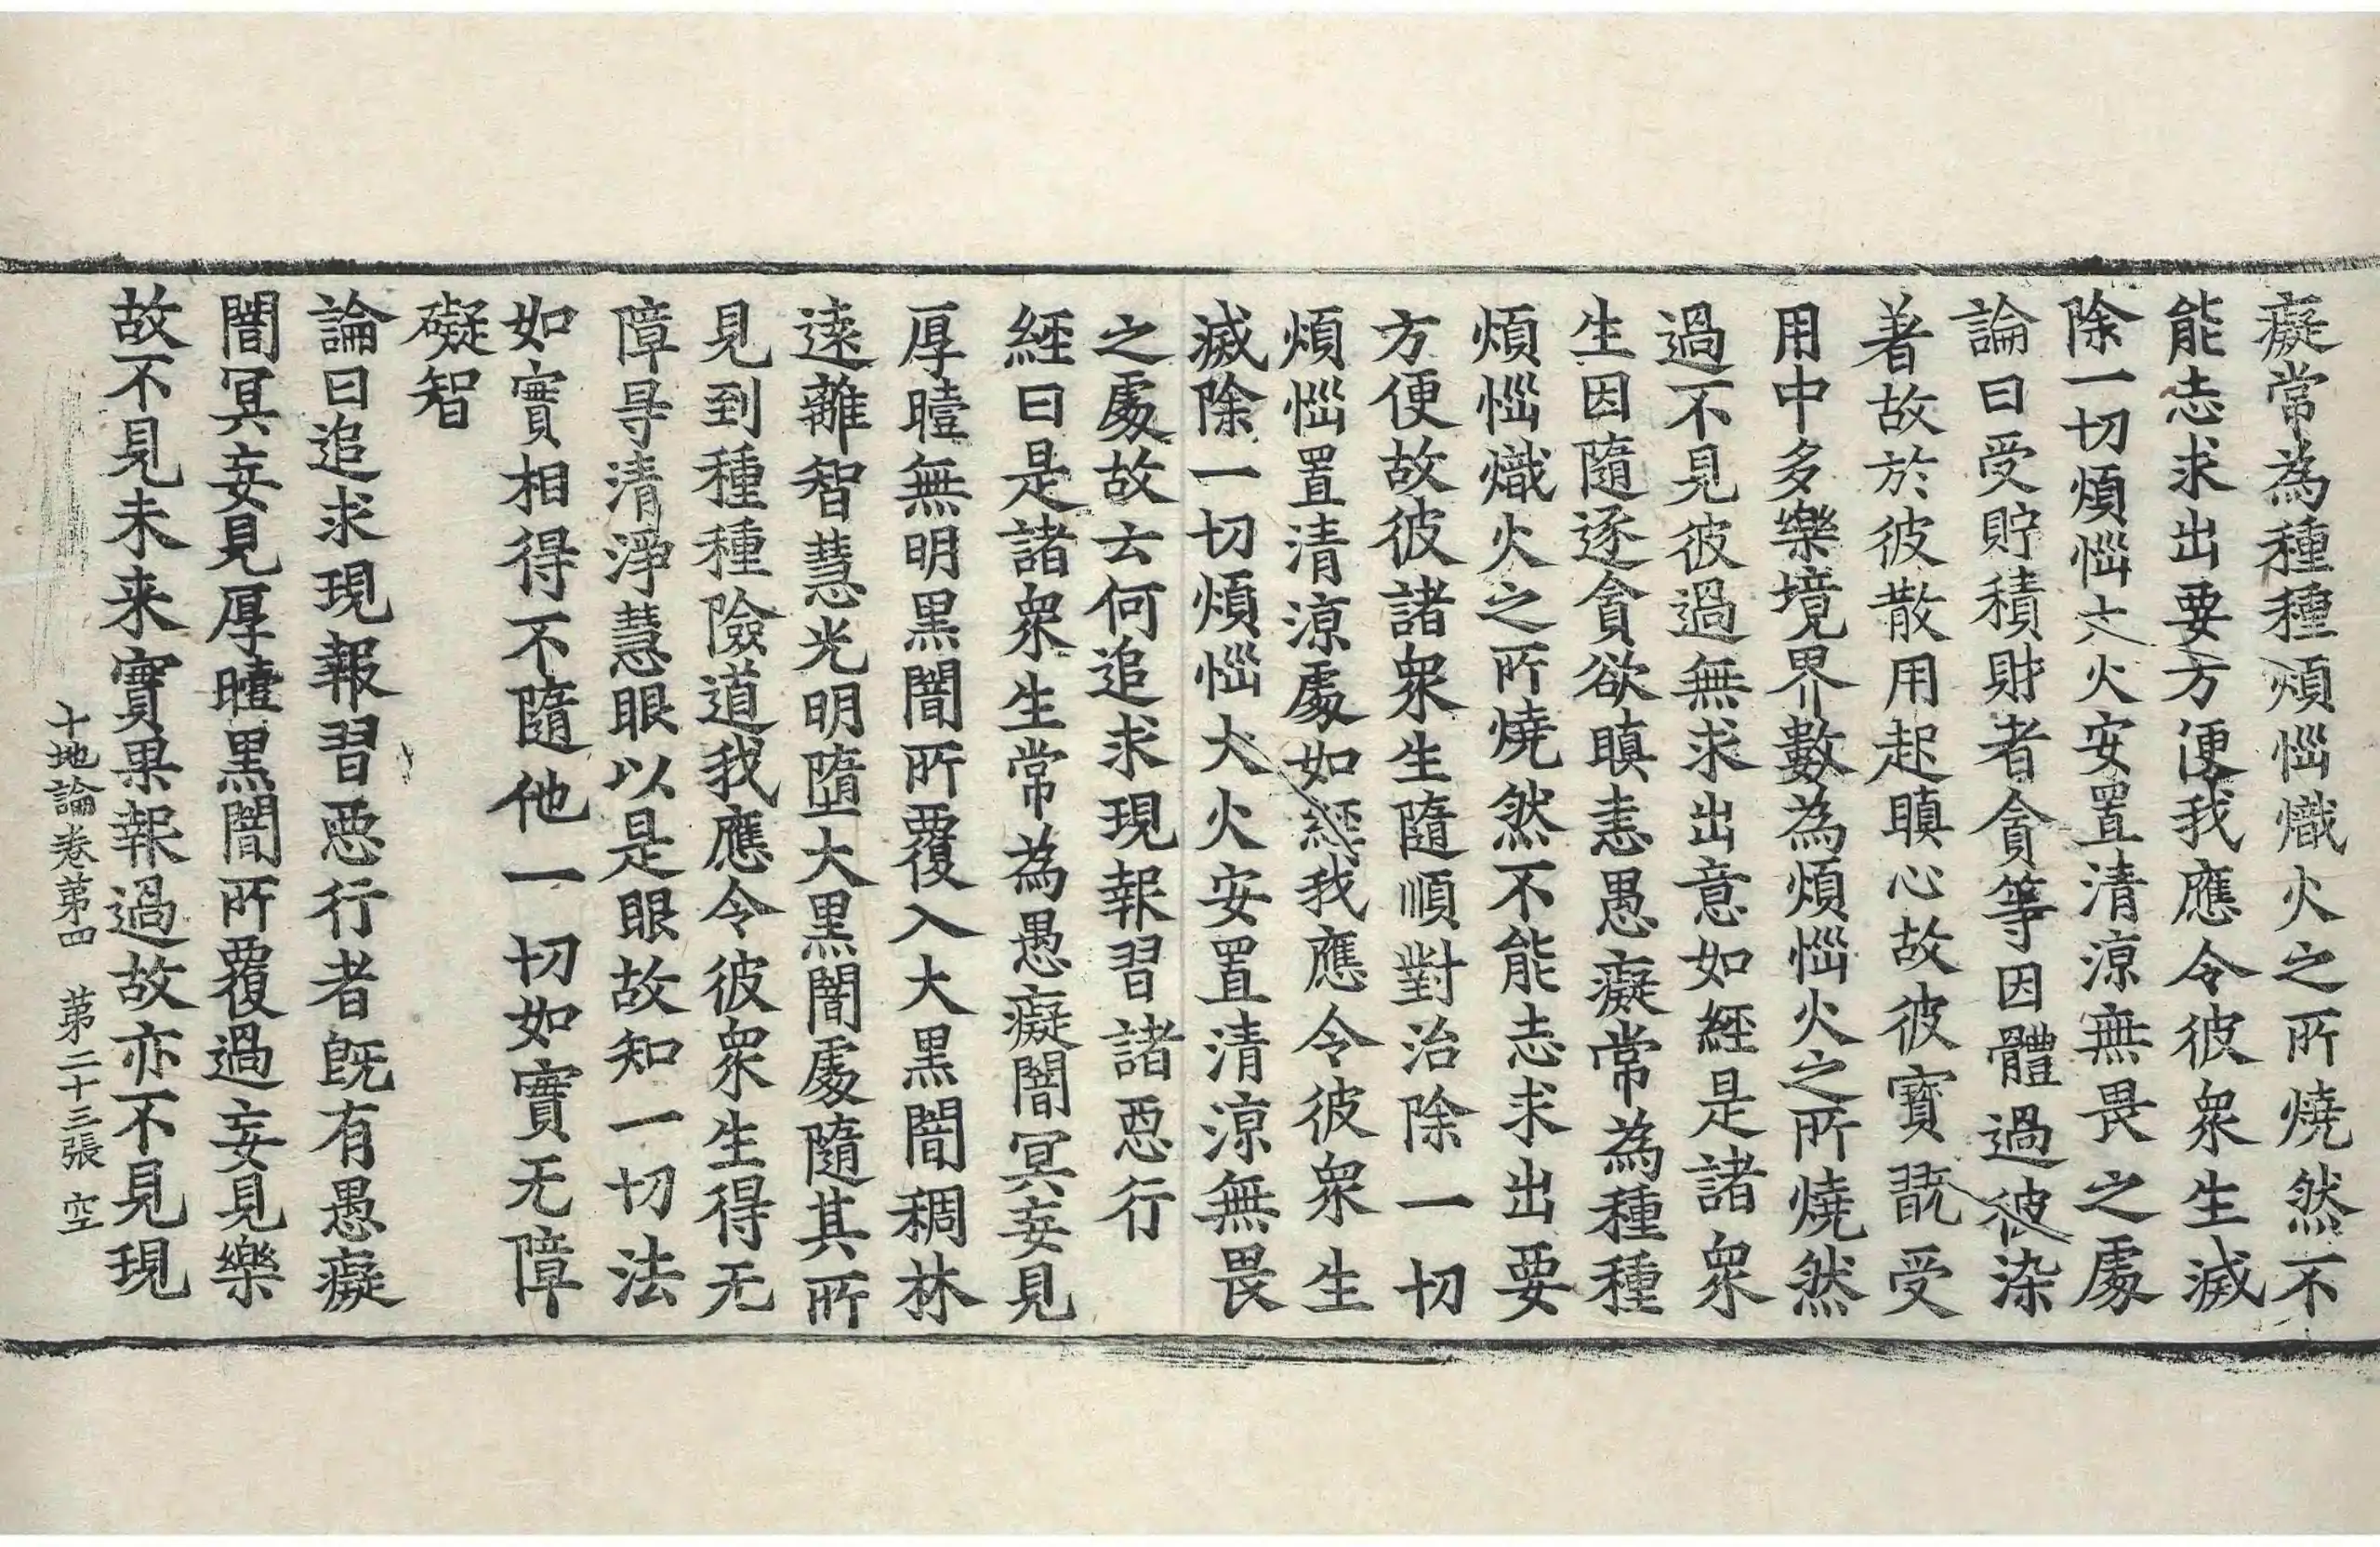 癡常為種種煩惱熾火之所燒然不
能志求出要方便我應令彼衆生滅
除一切煩惱大火安置清涼無畏之處
論曰受貯積財者貪等因體過彼染
著故於彼散用起瞋心故彼寶翫受
用中多樂境界數為煩惱火之所燒然
過不見彼過無求出意如經是諸衆
生因隨逐貪欲瞋恚愚癡常為種種
煩惱熾火之所燒然不能志求出要
方便故彼諸衆生隨順對治除一切
煩惱置清涼處如經我應令彼衆生
滅除一切煩惱大火安置清涼無畏
之處故云何追求現報習諸惡行
經曰是諸衆生常為愚癡闇冥妄見
厚曀無明黑闇所覆入大黑闇稠林
遠離智慧光明墮大黑闇處隨其所
見到種種險道我應令彼衆生得无
障㝵清淨慧眼以是眼故知一切法
如實相得不隨他一切如實无障
礙智
論曰追求現報習惡行者旣有愚癡
闇冥妄見厚曀黑闇所覆過妄見樂
故不見未来實果報過故亦不見現
十地論卷第四　第二十三張　空